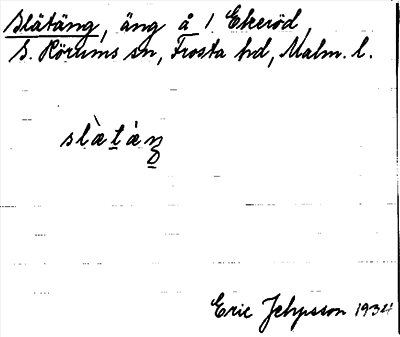 Slätäng, äng å 1 Ekeröd,
S. Rörums sn, Frosta hd, Malm. l.
slὰtὰŋ
Eric Jehpsson 1934